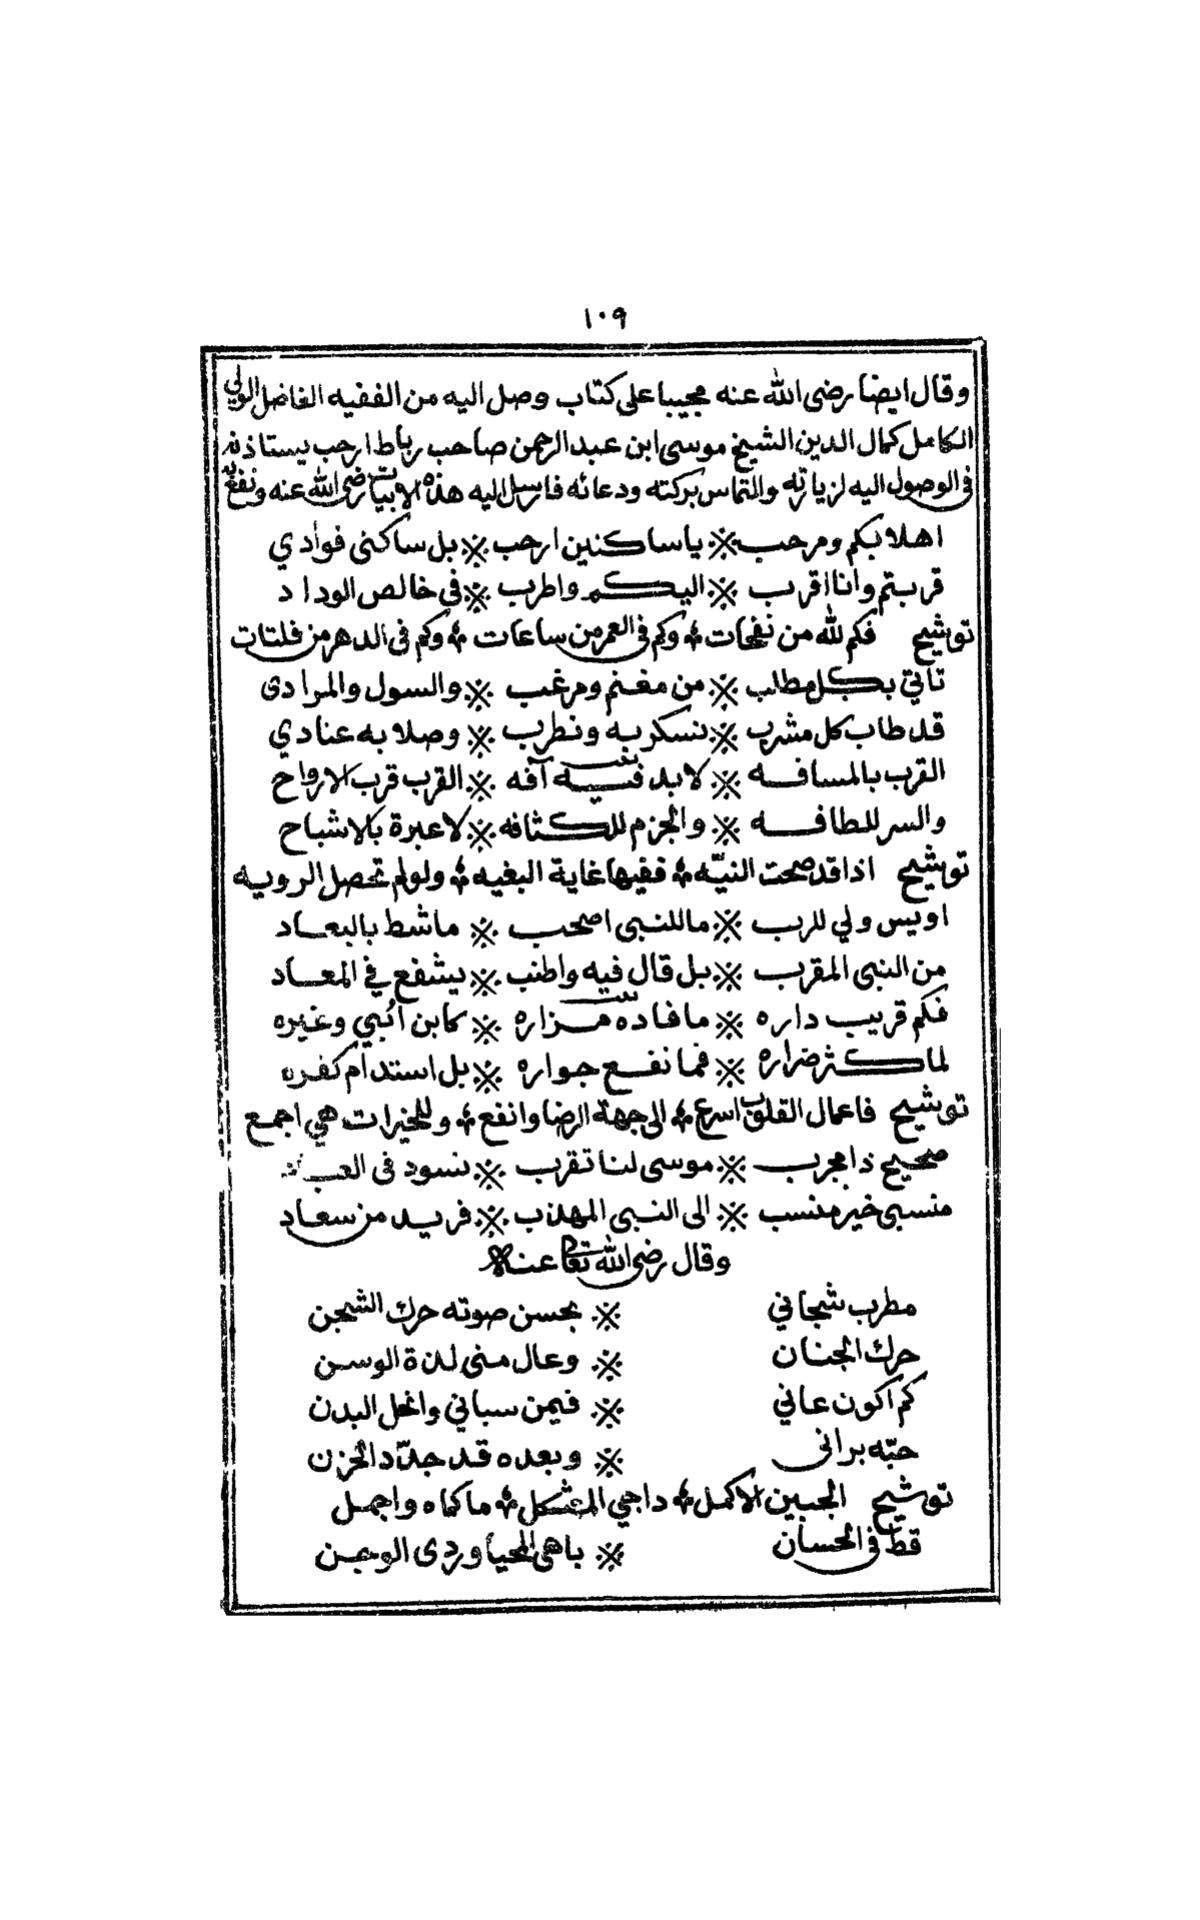 ١٠٩
وقال ايضا رضي الله عنه مجيبا على كتاب وصل اليه من الفقيه الفاضل الولي
الكامل كمال الدين الشيخ موسى ابن عبد الرحمن صاحب رباط ارحب يستاذنه
في الوصول اليه لزيارته والتماس بركته ودعائه فارسل اليه هذه الابيات رضي الله عنه ونفع به
اهلا بكم ومرحب ※ يا ساكنين ارحب ※ بل ساكني فوادي
قربتم وانا اقرب ※ اليكم واطرب ※ في خالص الوداد
توشيح فكم لله من نفحات ؞ وكم في العمر من ساعات ؞ وكم في الدهر من فلتات
تاتي بكل مطلب ※ من مغنم ومرغب ※ والسول والمرادى
قد طاب كل مشرب ※ نسكر به ونطرب ※ وصلا به عنادي
القرب بالمسافه ※ لابد فيه آفه ※ القرب قرب الارواح
والسر للطافه ※ والجزم للكثافه ※ لا عبرة بالاشباح
توشيح اذا قد صحت النيّه ؞ ففيها غاية البغيه ؞ ولو لم تحصل الرويه
اويس ولي للرب ※ ما للنبي اصحب ※ ما شط بالبعاد
من النبي المقرب ※ بل قال فيه واطنب ※ يشفع في المعاد
فكم قريب داره ※ ما فاده مزاره ※ كابن اُبي وغيره
لما كثر ضراره ※ فما نفع جواره ※ بل استدام كفره
توشيح فاعمال القلوب اسرع ؞ الى جهة الرضا وانفع ؞ وللخيرات هي اجمع
صحيح ذا مجرب ※ موسى لنا تقرب ※ نسود في العباد
منسبي خير منسب ※ الى النبي المهذب ※ فريد من سعاد
وقال رضي الله تعالى عنه
مطرب شجاني ※ بحسن صوته حرك الشجن
حرك الجنان ※ وعال مني لذة الوسن
كم اكون عاني ※ فيمن سباني وانحل البدن
حبّه براني ※ وبعده قد جدّد الحزن
توشيح الجبين الاكمل ؞ داجي المشكل ؞ ما كماه واجمل
قط في الحسان ※ باهي المحيا وردي الوجن